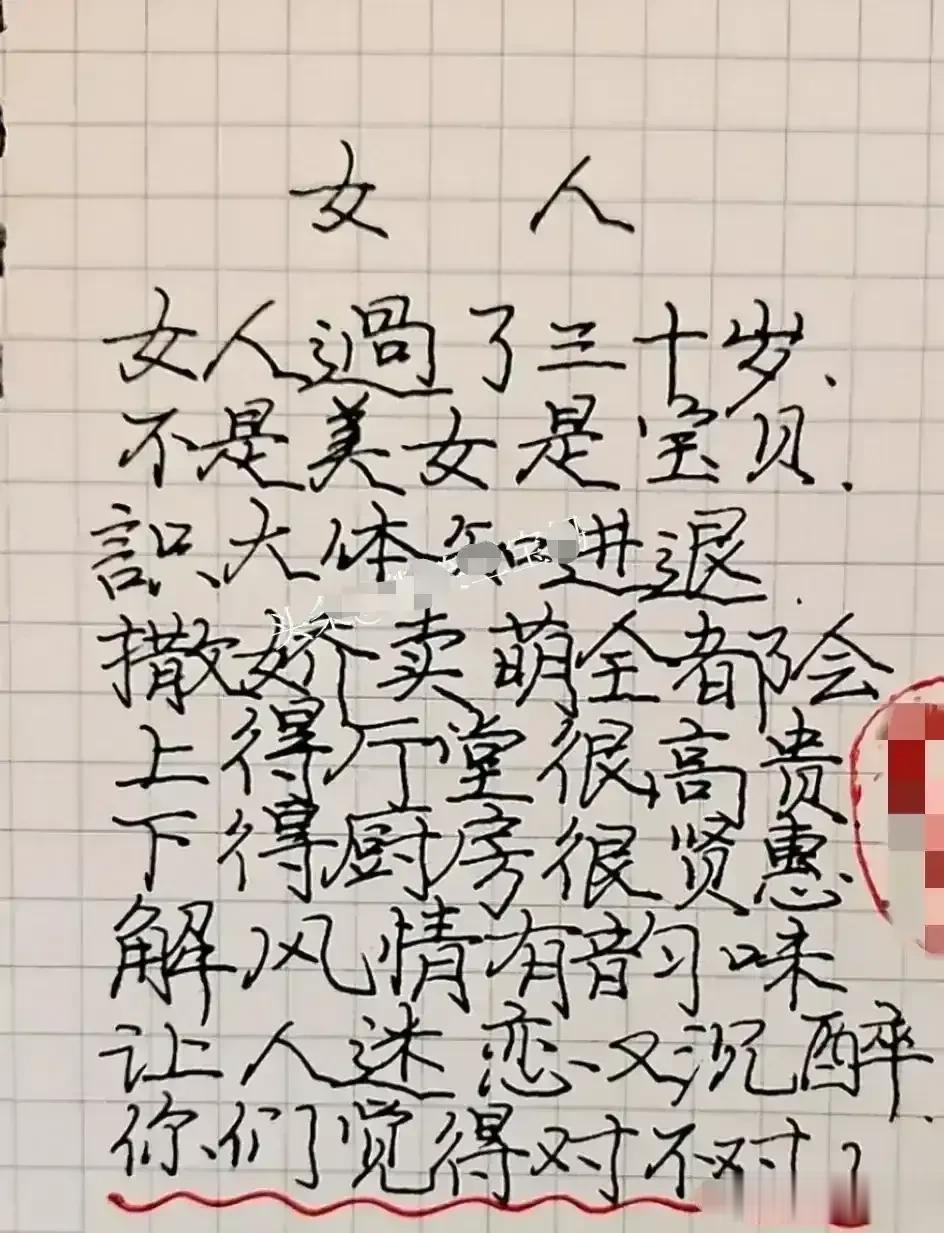 女人
女人過了三十岁、
不是美女是宝贝.
識大体知进退.
撒娇卖萌全都会
上得厅堂很高贵
下得厨房很贤惠
解风情有韵味
让人迷恋又沉醉.
你们觉得对不对？
头条